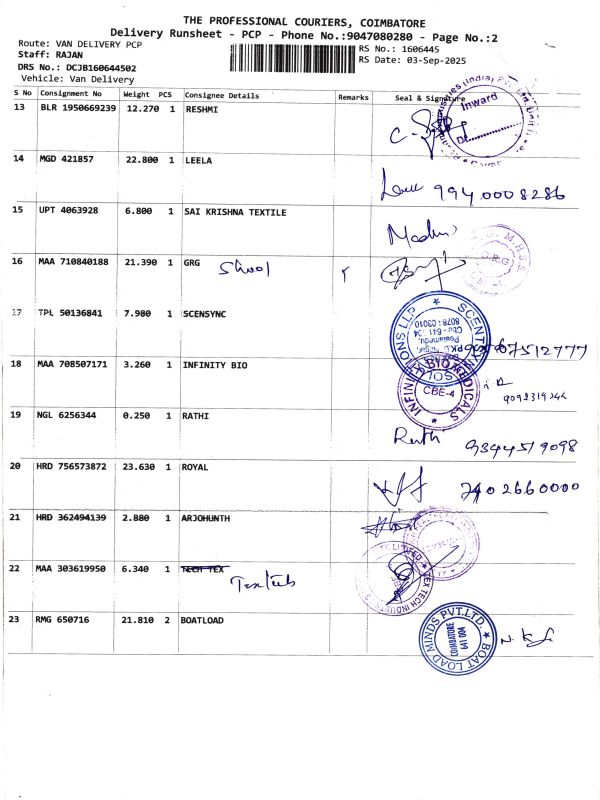 THE PROFESSIONAL COURIERS, COIMBATORE
Delivery Runsheet - PCP - Phone No.:9047080280 - Page No.:2
Route: VAN DELIVERY PCP
Staff: RAJAN
DRS No.: DCJB160644502
Vehicle: Van Delivery
RS No.: 1606445
RS Date: 03-Sep-2025
S No Consignment No Weight PCS Consignee Details Remarks Seal & Signature
13 BLR 1950669239 12.270 1 RESHMI
Inward
14 MGD 421857 22.800 1 LEELA
9940008286
15 UPT 4063928 6.800 1 SAI KRISHNA TEXTILE
16 MAA 710840188 21.390 1 GRG
G.R.G M.H.S.S.
17 TPL 50136841 7.980 1 SCENSYNC
18 MAA 708507171 3.260 1 INFINITY BIO
INFINITI BIOMEDICALS
CBE-4
19 NGL 6256344 0.250 1 RATHI
20 HRD 756573872 23.630 1 ROYAL
7402660000
21 HRD 362494139 2.880 1 ARJOHUNTH
22 MAA 303619950 6.340 1 TECH TEX
23 RMG 650716 21.810 2 BOATLOAD
BOAT LOAD MINDS PVT.LTD.
COIMBATORE
641 004